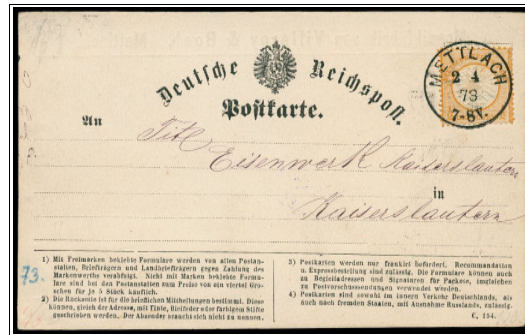 Deutsche Reichspost.
Postkarte.
METTLACH
2 4
73
7-8V.
An
Titl
Eisenwerk Kaiserslautern
in
Kaiserslautern
73.
1) Mit Freimarken beklebte Formulare werden von allen Postan-
stalten, Briefträgern und Landbriefträgern gegen Zahlung des
Markenwerths verabfolgt. Nicht mit Marken beklebte Formu-
lare sind bei den Postanstalten zum Preise von ein viertel Gro-
schen für je 5 Stück käuflich.
2) Die Rückseite ist für die brieflichen Mittheilungen bestimmt. Diese
können, gleich der Adresse, mit Tinte, Bleifeder oder farbigen Stifte
geschrieben werden. Der Absender braucht sich nicht zu nennen.
3) Postkarten werden nur frankirt befördert. Recommandation
u. Expressbestellung sind zulässig. Die Formulare können auch
zu Begleitadressen und Signaturen für Packete, imgleichen
zu Postvorschusssendungen verwendet werden.
4) Postkarten sind sowohl im innern Verkehr Deutschlands, als
auch nach fremden Staaten, mit Ausnahme Russlands, zulässig.
C. 154.